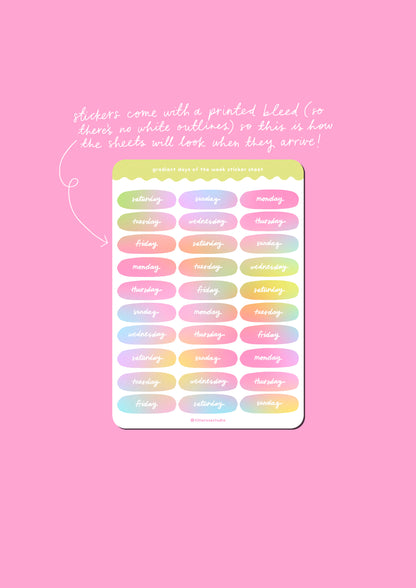 stickers come with a printed bleed (so
there's no white outlines) so this is how
the sheets will look when they arrive!
gradient days of the week sticker sheet
saturday sunday monday
tuesday wednesday thursday
friday saturday sunday
monday tuesday wednesday
thursday friday saturday
sunday monday tuesday
wednesday thursday friday
saturday sunday monday
tuesday wednesday thursday
friday saturday sunday